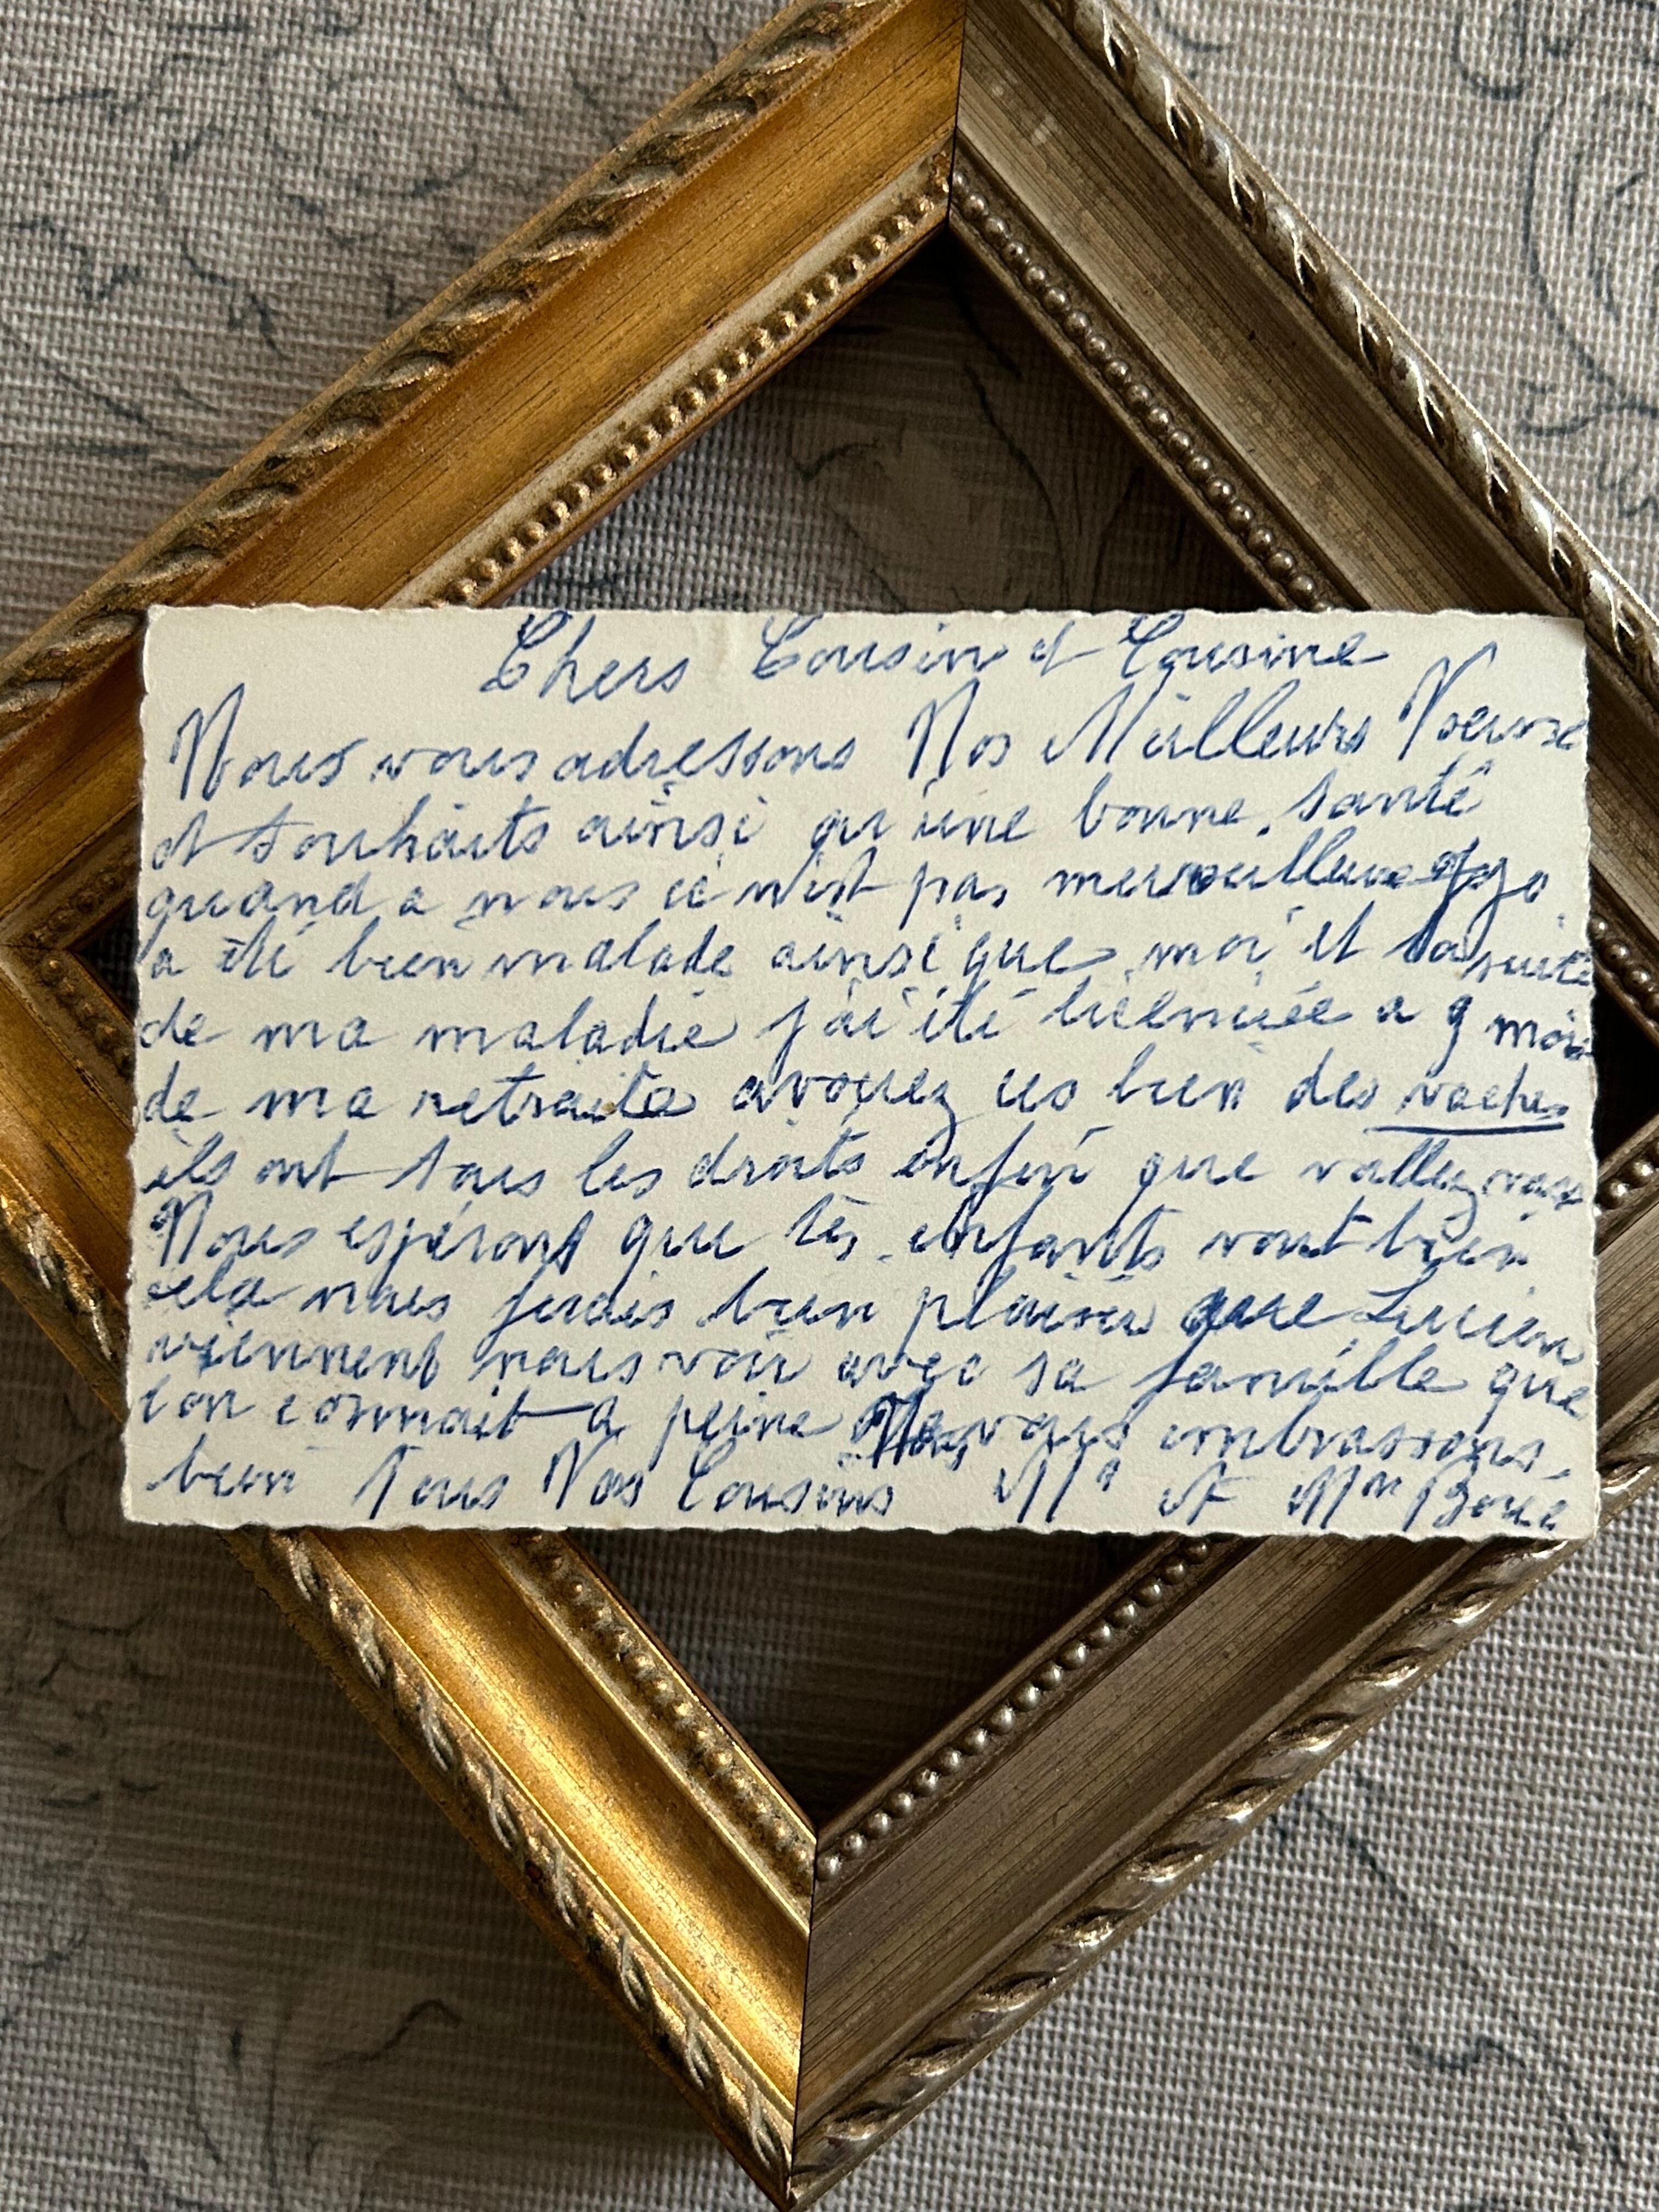 Chers Cousin et Cousine
Nous vous adressons Nos Meilleurs Voeuse
et souhaits ainsi qu'une bonne santé
quand a nous ce n'est pas merveilleuse
a été bien malade ainsi que moi et sa suite
de ma maladie j'ai été licenciée a 9 mois
de ma retraite avouez ces bien des vaches
ils ont tous les droits enfin que vallez vous
Nous espérons que tes enfants vont bien
cela nous ferais bien plaisir que Lucien
viennent nous voir avec sa famille que
l'on connait a peine Nous vous embrassons
bien Tous Vos Cousins Mr et Mm